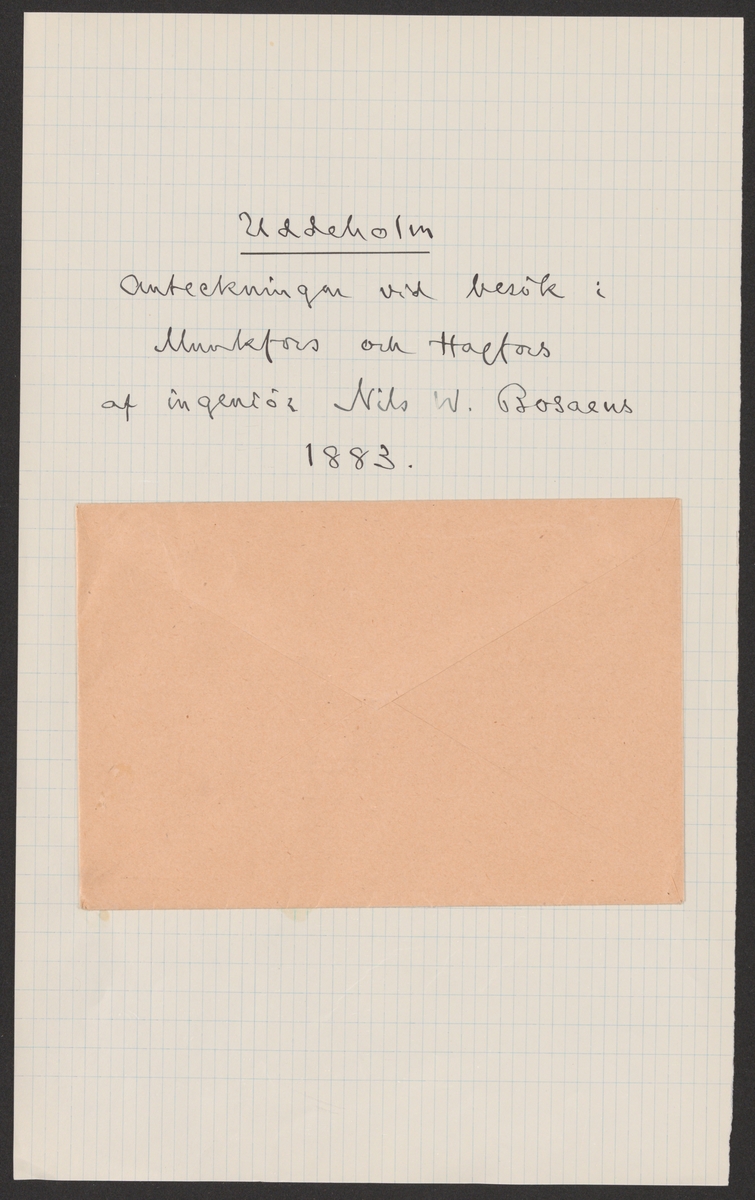 Uddeholm
Anteckningar vid besök i
Munkfors och Hagfors
af ingeniör Nils W. Bosaeus
1883.